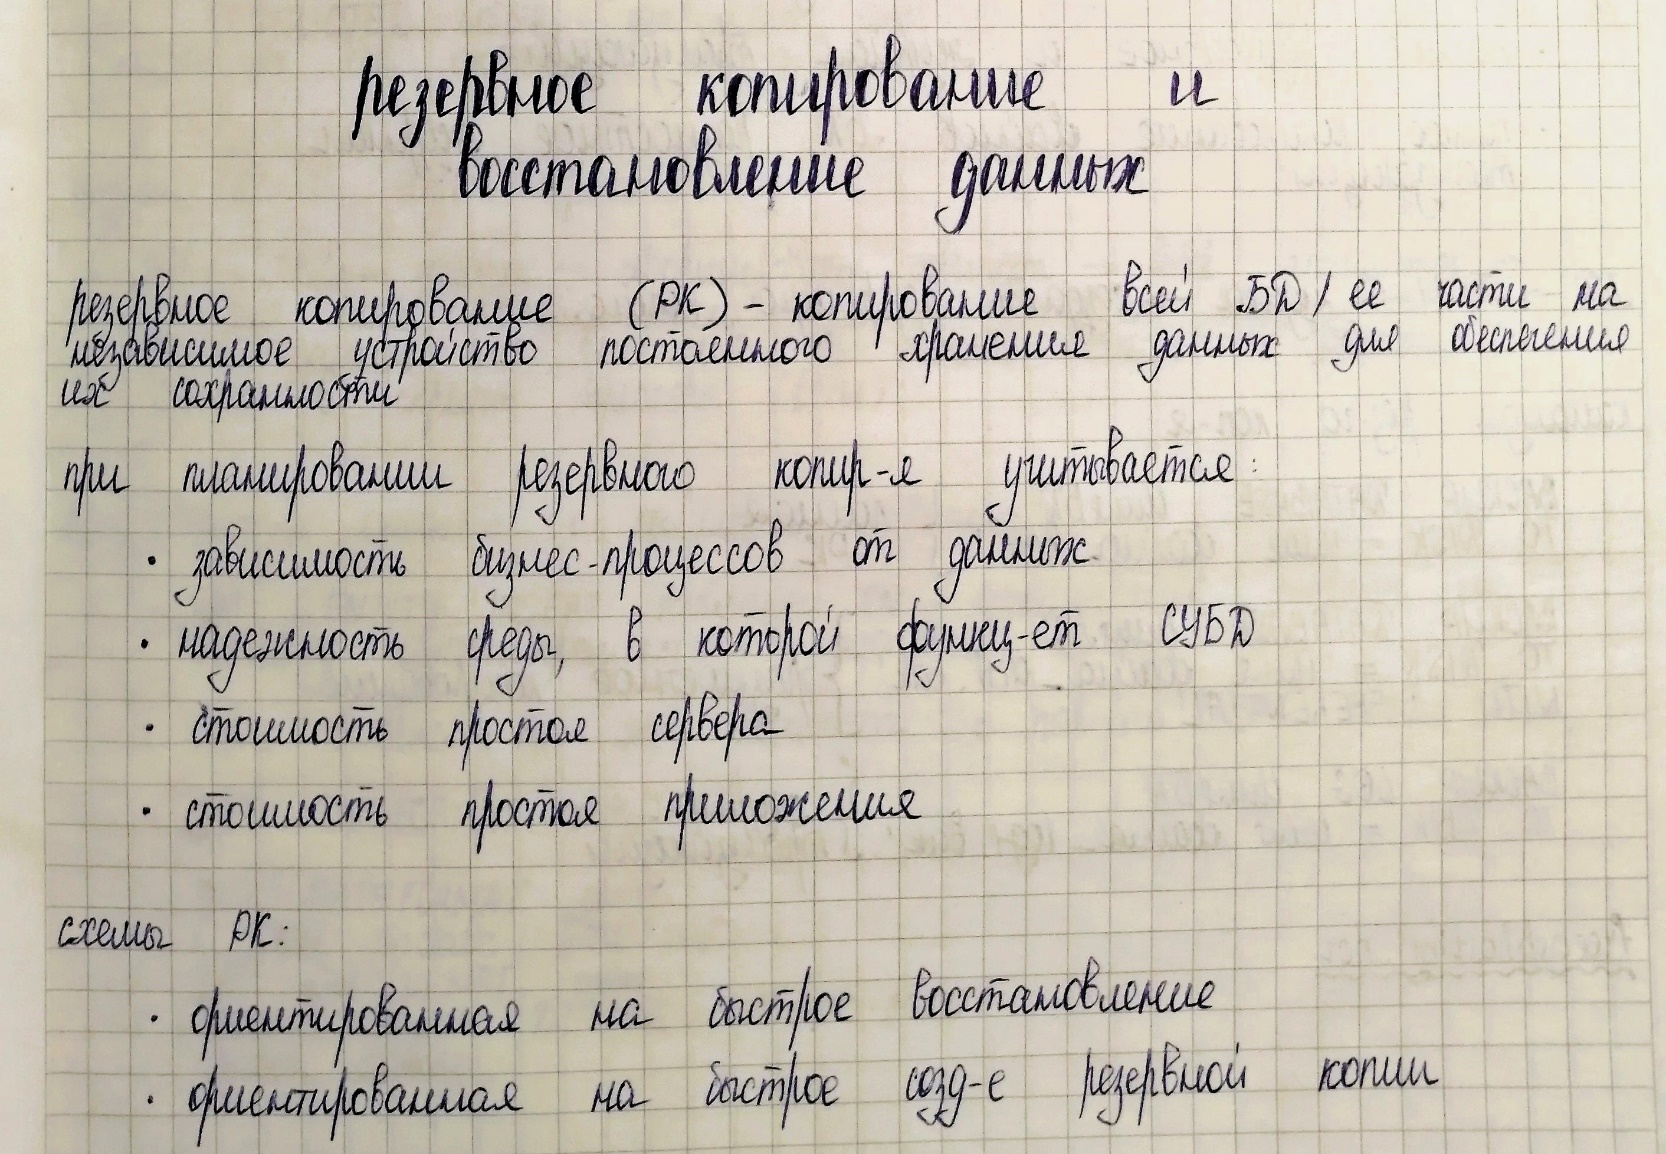 резервное копирование и
восстановление данных
резервное копирование (РК) - копирование всей БД / ее части на
независимое устройство постоянного хранения данных для обеспечения
их сохранности
при планировании резервного копир-я учитывается:
· зависимость бизнес-процессов от данных
· надежность среды, в которой функц-ет СУБД
· стоимость простоя сервера
· стоимость простоя приложения
схемы РК:
· ориентированная на быстрое восстановление
· ориентированная на быстрое созд-е резервной копии